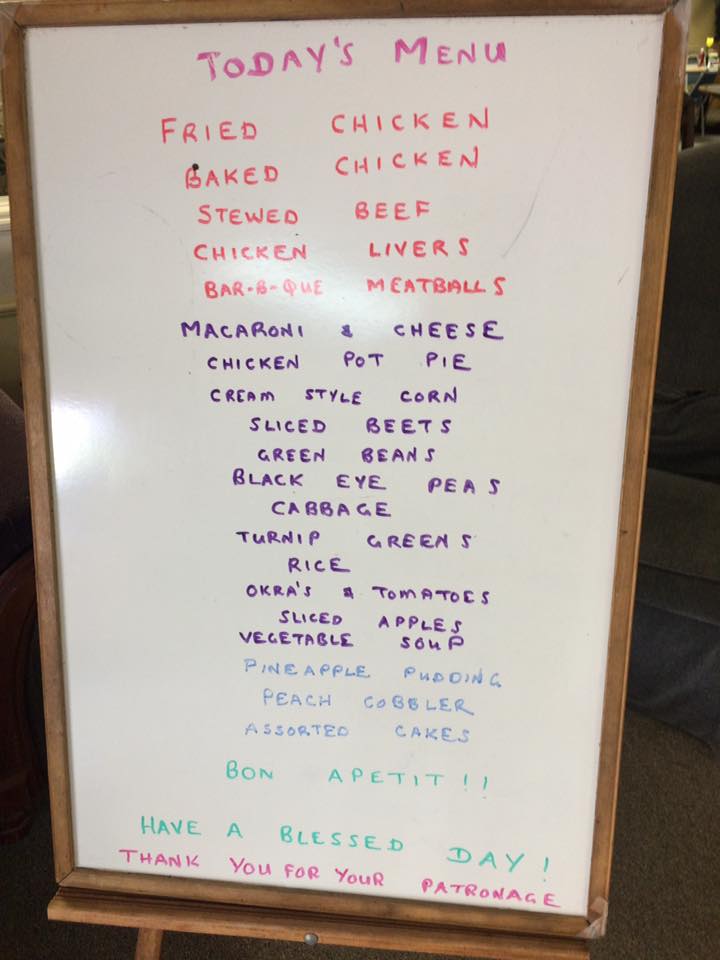 TODAY'S MENU
FRIED CHICKEN
BAKED CHICKEN
STEWED BEEF
CHICKEN LIVERS
BAR-B-QUE MEATBALLS
MACARONI & CHEESE
CHICKEN POT PIE
CREAM STYLE CORN
SLICED BEETS
GREEN BEANS
BLACK EYE PEAS
CABBAGE
TURNIP GREENS
RICE
OKRA'S & TOMATOES
SLICED APPLES
VEGETABLE SOUP
PINEAPPLE PUDDING
PEACH COBBLER
ASSORTED CAKES
BON APETIT!!
HAVE A BLESSED DAY!
THANK YOU FOR YOUR PATRONAGE